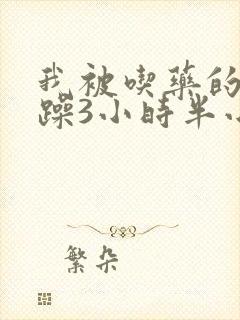 我被喫藥的
躁3小時半小
繁朵